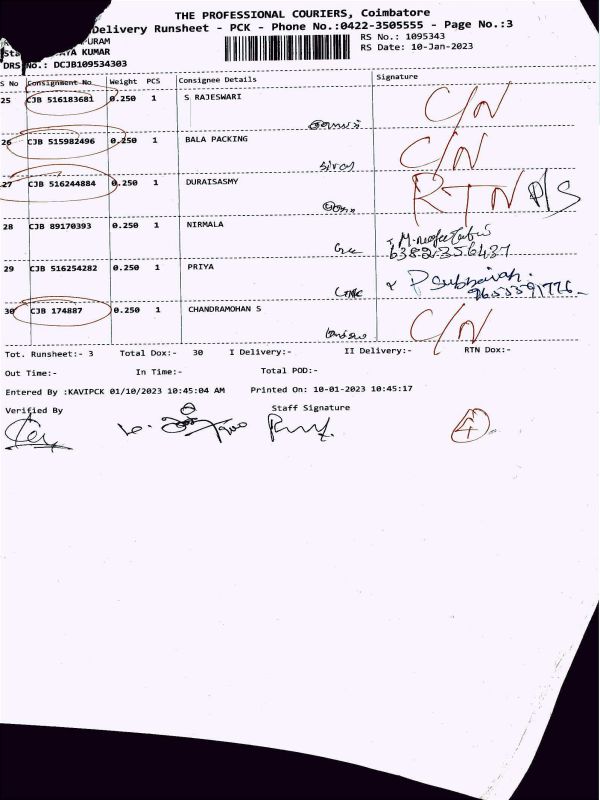 THE PROFESSIONAL COURIERS, Coimbatore
Delivery Runsheet - PCK - Phone No.:0422-3505555 - Page No.:3
RS No.: 1095343
PURAM
RS Date: 10-Jan-2023
KUMAR
DRS No.: DCJB109534303
S No Consignment No Weight PCS Consignee Details Signature
25 CJB 516183681 0.250 1 S RAJESWARI C/N
26 CJB 515982496 0.250 1 BALA PACKING C/N
27 CJB 516244884 0.250 1 DURAISASMY RTN D/S
28 CJB 89170393 0.250 1 NIRMALA
6382356437
29 CJB 516254282 0.250 1 PRIYA P Subbaiah.
30 CJB 174887 0.250 1 CHANDRAMOHAN S C/N
Tot. Runsheet:- 3 Total Dox:- 30 I Delivery:- II Delivery:- RTN Dox:-
Out Time:- In Time:- Total POD:-
Entered By :KAVIPCK 01/10/2023 10:45:04 AM Printed On: 10-01-2023 10:45:17
Verified By Staff Signature
4